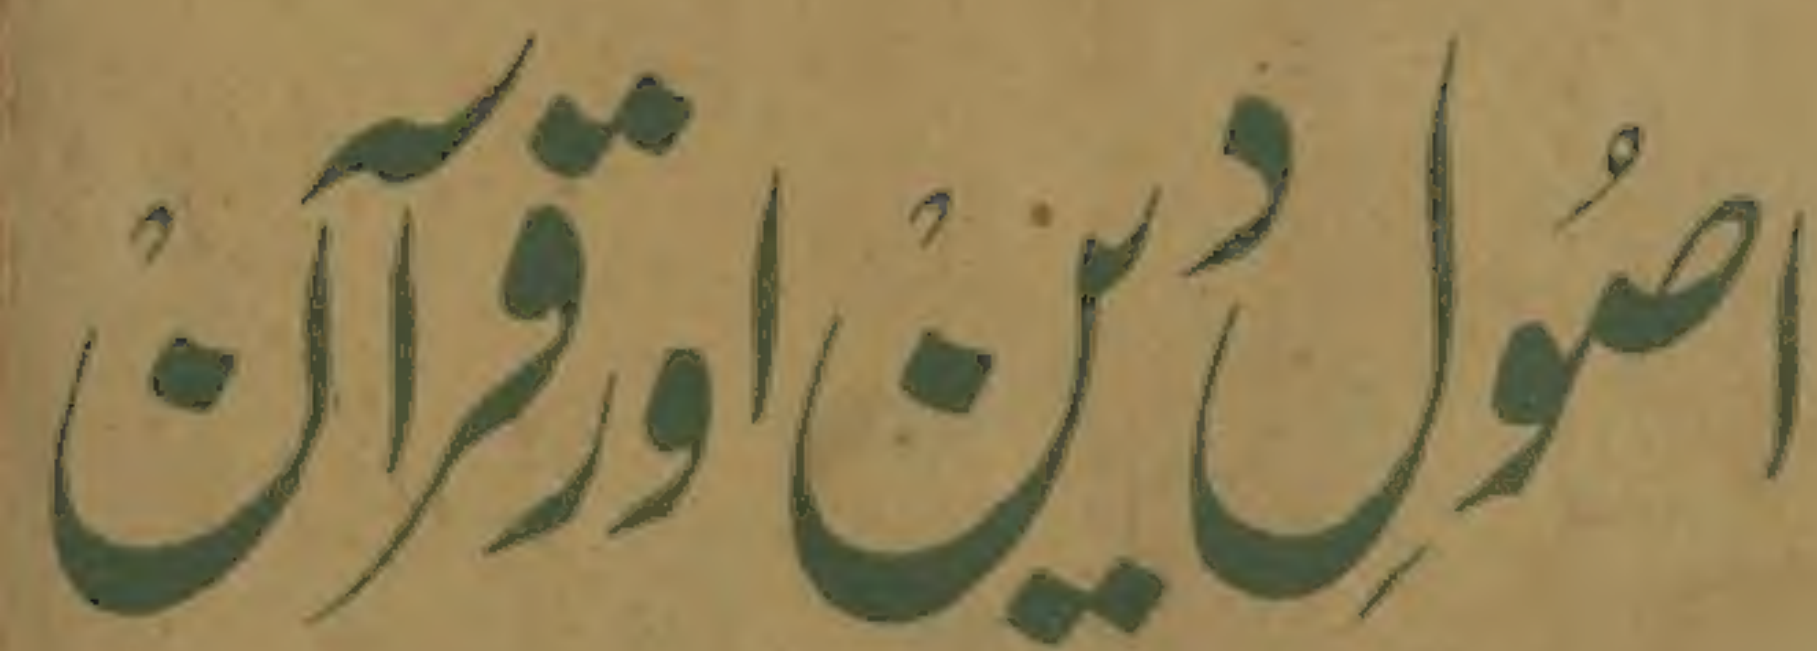 اصُولِ دین اور قرآن